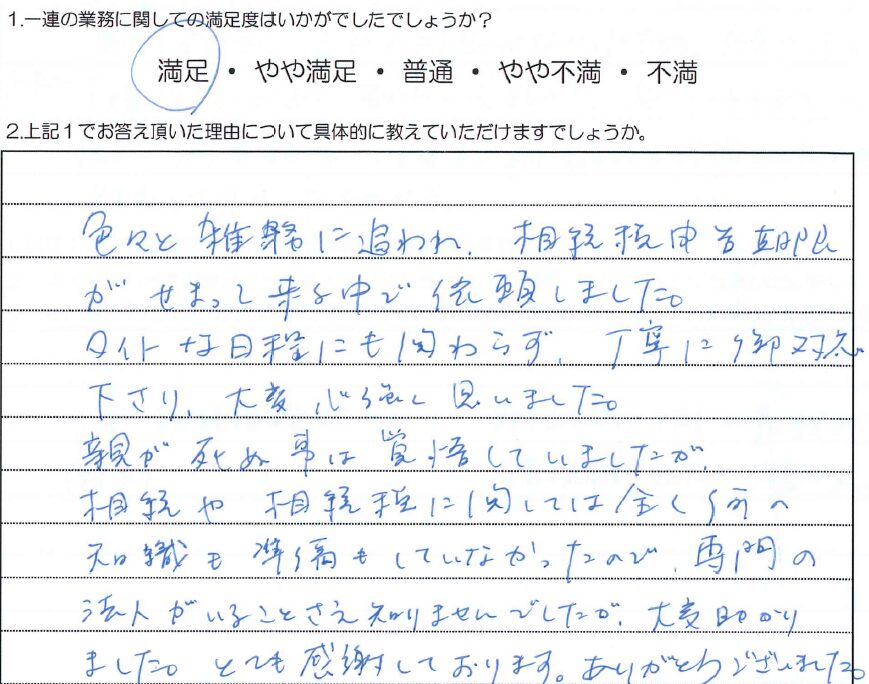 1.一連の業務に関しての満足度はいかがでしたでしょうか?
満足 ・ やや満足 ・ 普通 ・ やや不満 ・ 不満
2.上記1でお答え頂いた理由について具体的に教えていただけますでしょうか。
色々と雑務に追われ、相続税申告期限
がせまって来る中で依頼しました。
タイトな日程にも関わらず、丁寧に御対応
下さり、大変心強く思いました。
親が死ぬ事は覚悟していましたが、
相続や相続税に関しては全く何の
知識も準備もしていなかったので、専門の
法人がいることさえ知りませんでしたが、大変助かり
ました。とても感謝しております。ありがとうございました。